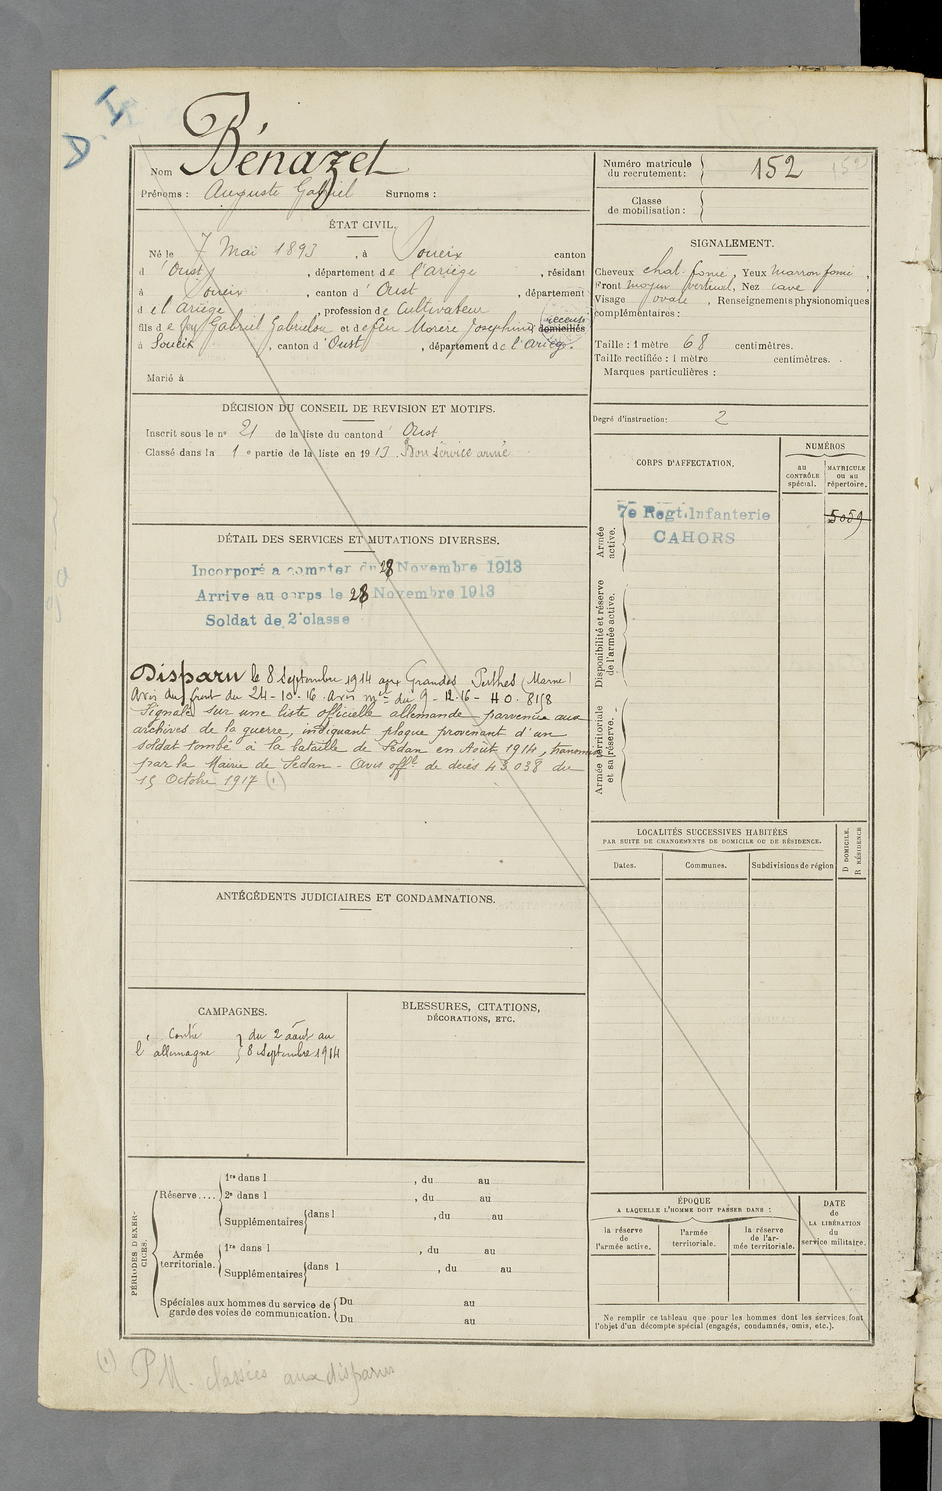 D. I
Bénazet
Nom
Prénoms : Auguste Gabriel Surnoms :
ÉTAT CIVIL.
Né le 7 Mai 1893, à Soueix canton
d'Oust, département de l'Ariège, résidant
à Soueix, canton d'Oust, département
de l'Ariège, profession de Cultivateur
fils de feu Gabriel Gabrielou et de feu Morère Joséphine domiciliés
à Soueix, canton d'Oust, département de l'Ariège.
Marié à
DÉCISION DU CONSEIL DE REVISION ET MOTIFS.
Inscrit sous le nº 21 de la liste du canton d'Oust
Classé dans la 1e partie de la liste en 1913. Bon service armé
DÉTAIL DES SERVICES ET MUTATIONS DIVERSES.
Incorporé a compter du 28 Novembre 1913
Arrive au corps le 28 Novembre 1913
Soldat de 2e classe
Disparu le 8 Septembre 1914 aux Grandes Perthes (Marne)
Avis du front du 24-10-16. Avis mel du 9-12-16 - HO. 8158
Signalé sur une liste officielle allemande parvenue aux
archives de la guerre, indiquant plaque provenant d'un
soldat tombé à la bataille de Sedan en Août 1914, transmise
par la Mairie de Sedan - Avis offel de décès 43.038 du
15 Octobre 1917 (1)
ANTÉCÉDENTS JUDICIAIRES ET CONDAMNATIONS.
CAMPAGNES.
Contre du 2 août au
l'allemagne 8 Septembre 1914
BLESSURES, CITATIONS,
DÉCORATIONS, ETC.
PÉRIODES D'EXERCICES.
Réserve....
1re dans l , du au
2e dans l , du au
Supplémentaires dans l , du au
Armée territoriale.
1re dans l , du au
Supplémentaires dans l , du au
Spéciales aux hommes du service de garde des voies de communication.
Du au
Du au
Numéro matricule du recrutement : 152
Classe de mobilisation :
SIGNALEMENT.
Cheveux chat. foncé, Yeux marron foncé,
Front moyen vertical, Nez cave
Visage ovale, Renseignements physionomiques
complémentaires :
Taille : 1 mètre 68 centimètres.
Taille rectifiée : 1 mètre centimètres.
Marques particulières :
Degré d'instruction : 2
CORPS D'AFFECTATION.
NUMÉROS
au CONTRÔLE spécial.
MATRICULE ou au répertoire.
Armée active.
7e Regt. Infanterie
CAHORS
5059
Disponibilité et réserve de l'armée active.
Armée territoriale et sa réserve.
LOCALITÉS SUCCESSIVES HABITÉES
PAR SUITE DE CHANGEMENTS DE DOMICILE OU DE RÉSIDENCE.
D DOMICILE.
R RÉSIDENCE
Dates. Communes. Subdivisions de région
ÉPOQUE
A LAQUELLE L'HOMME DOIT PASSER DANS :
la réserve de l'armée active.
l'armée territoriale.
la réserve de l'armée territoriale.
DATE de LA LIBÉRATION du service militaire.
Ne remplir ce tableau que pour les hommes dont les services font
l'objet d'un décompte spécial (engagés, condamnés, omis, etc.).
(1) P.M. classées aux disparus